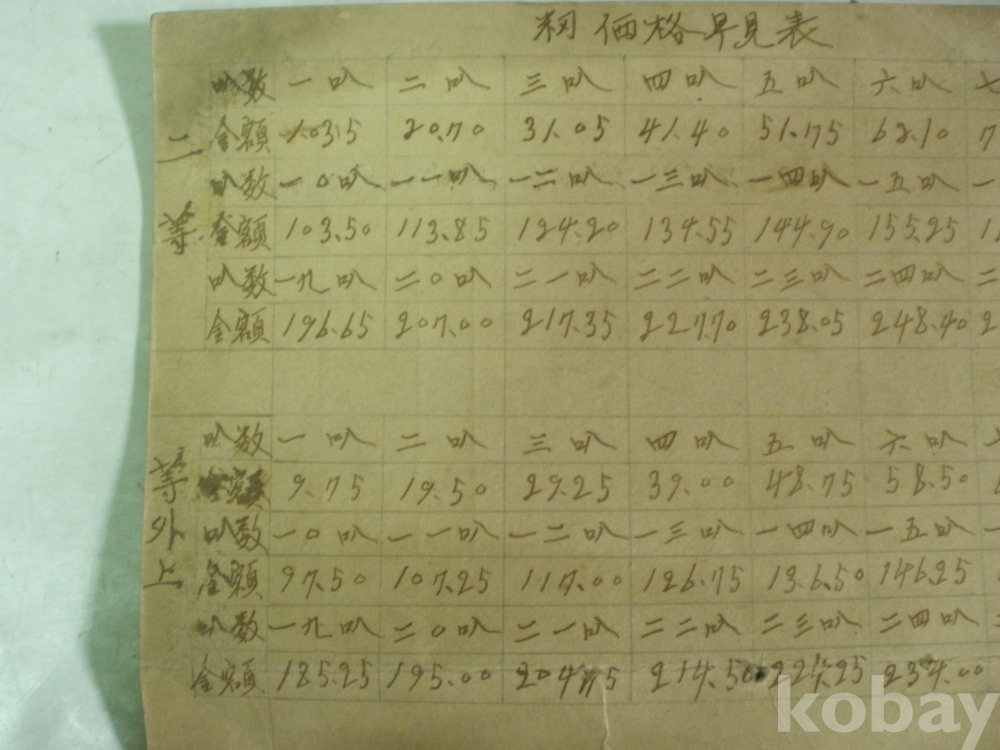 籾価格早見表
二等
叺数 一叺 二叺 三叺 四叺 五叺 六叺 七
金額 10.35 20.70 31.05 41.40 51.75 62.10 7
叺数 一〇叺 一一叺 一二叺 一三叺 一四叺 一五叺 一
金額 103.50 113.85 124.20 134.55 144.90 155.25 1
叺数 一九叺 二〇叺 二一叺 二二叺 二三叺 二四叺 二
金額 196.65 207.00 217.35 227.70 238.05 248.40 2
等外上
叺数 一叺 二叺 三叺 四叺 五叺 六叺
金額 9.75 19.50 29.25 39.00 48.75 58.50
叺数 一〇叺 一一叺 一二叺 一三叺 一四叺 一五叺 一
金額 97.50 107.25 117.00 126.75 136.50 146.25
叺数 一九叺 二〇叺 二一叺 二二叺 二三叺 二四叺 二
金額 185.25 195.00 204.75 214.50 224.25 234.00
kobay